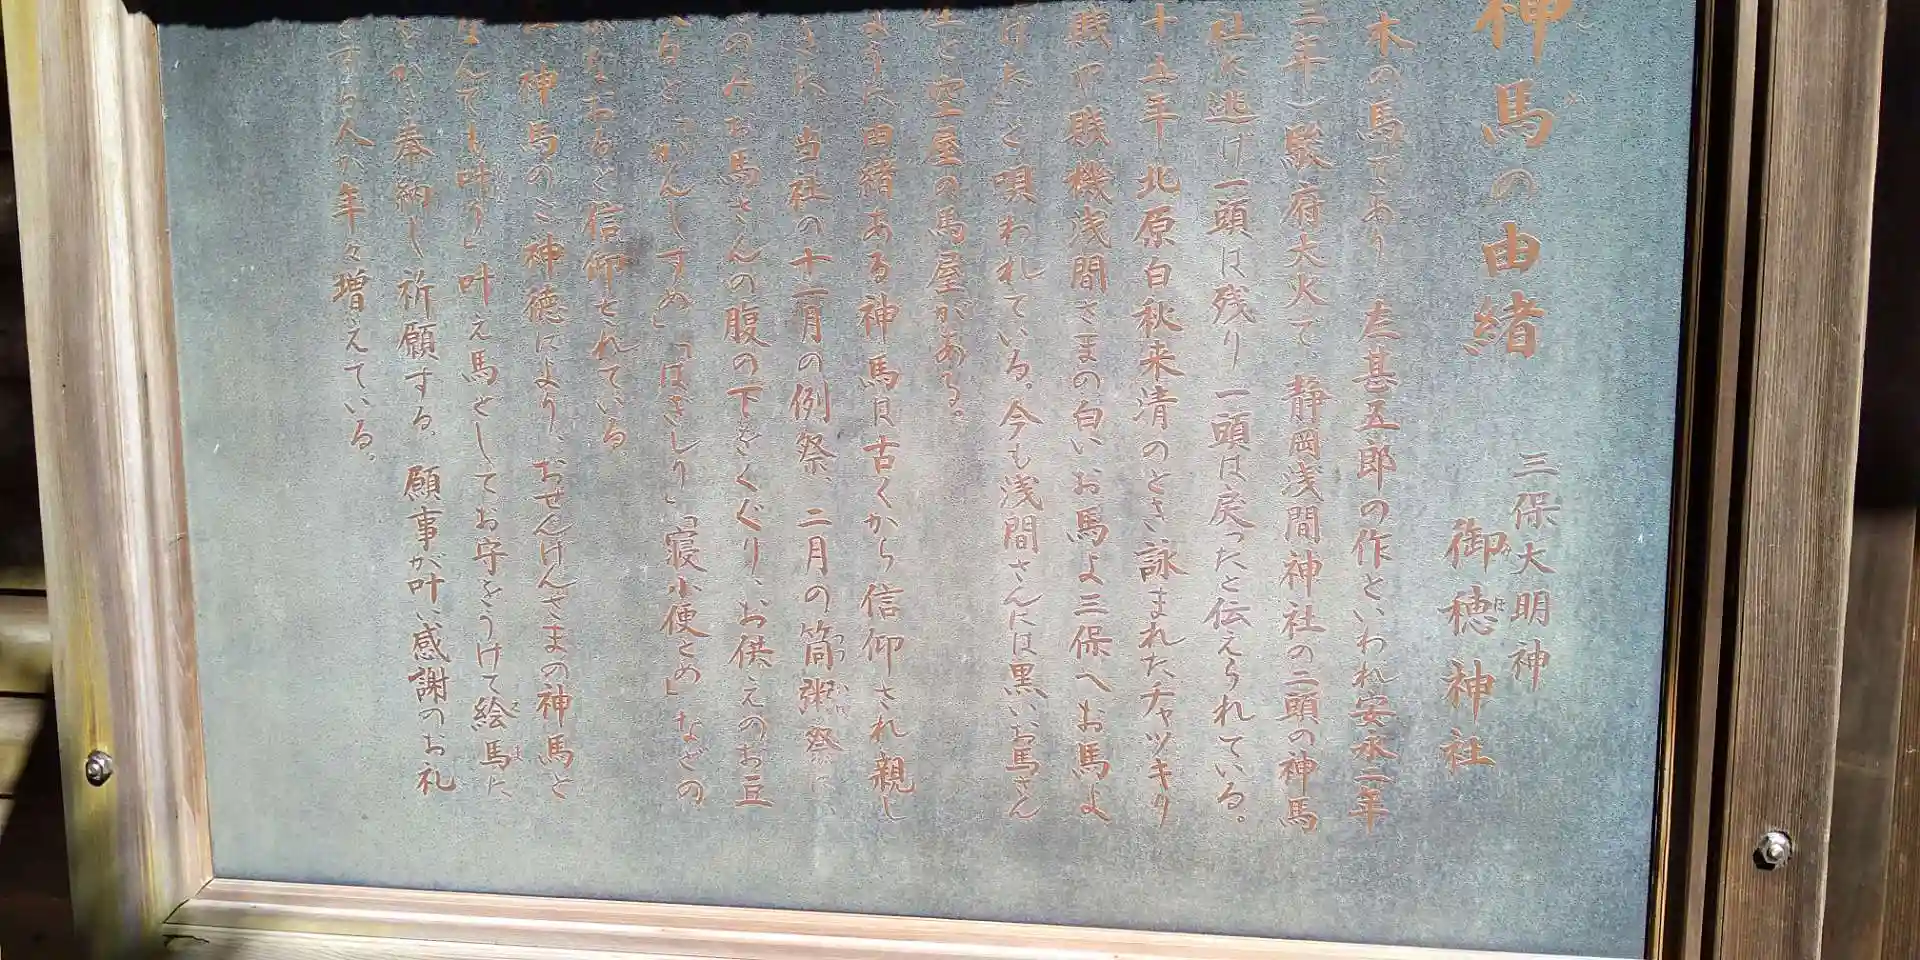 神馬の由緒
三保大明神
御穂神社
み ほ
木の馬であり 左甚五郎の作といわれ安永二年
三年)駿府大火で、静岡浅間神社の二頭の神馬
社に逃げ一頭は残り一頭は戻ったと伝えられている。
十五年北原白秋来清のとき詠まれたチャッキリ
賎や賎機浅間さまの白いお馬よ三保へお馬よ
げた」と唄われている。今も浅間さんには黒いお馬さん
と空屋の馬屋がある。
ように由緒ある神馬は古くから信仰され親し
きた 当社の十一月の例祭、二月の筒粥祭に
のみお馬さんの腹の下をくぐり、お供えのお豆
ると「かんしずめ」「はぎしり」「寝小便とめ」などの
があると信仰されている
神馬のご神徳により、おせんげんさまの神馬と
なんでも叶う」叶え馬としてお守をうけて絵馬に
えま
をかき奉納し祈願する。願事が叶い感謝のお礼
とする人が年々増えている。